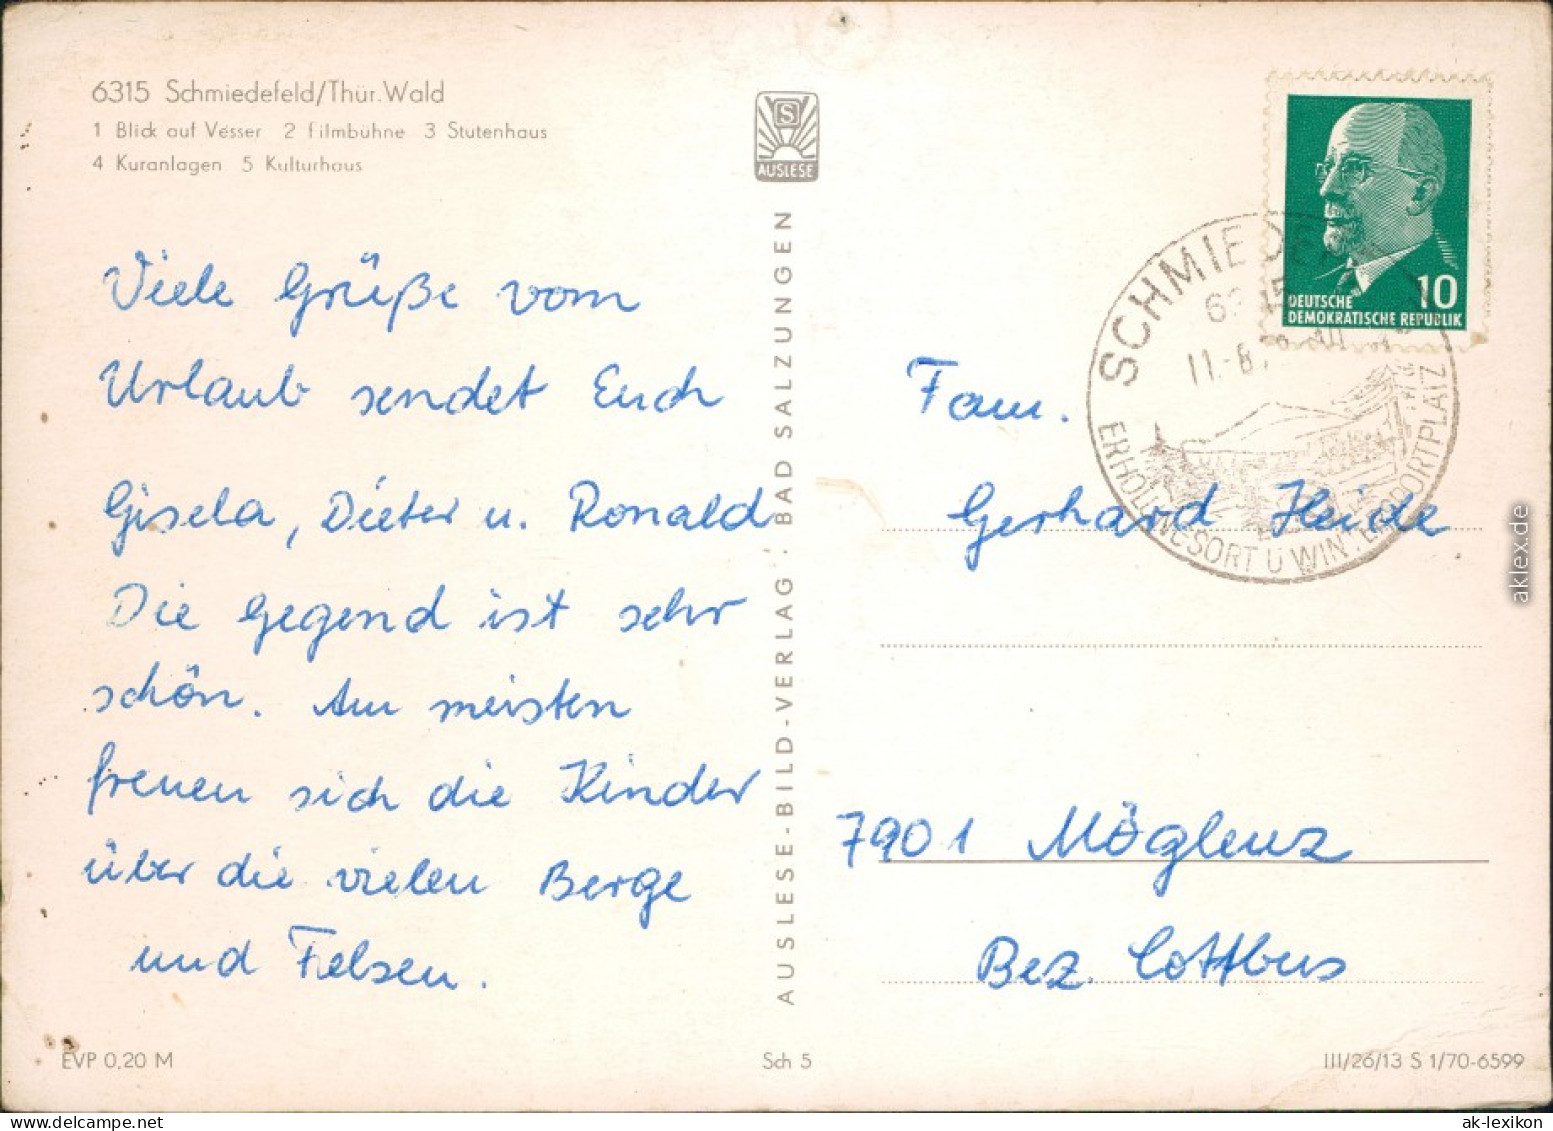 6315 Schmiedefeld/Thür. Wald
1 Blick auf Vesser 2 Filmbühne 3 Stutenhaus
4 Kuranlagen 5 Kulturhaus
S
AUSLESE
Viele Grüße vom
Urlaub sendet Euch
Gisela, Dieter u. Ronald
Die Gegend ist sehr
schön. Am meisten
freuen sich die Kinder
über die vielen Berge
und Felsen.
AUSLESE-BILD-VERLAG · BAD SALZUNGEN
10
DEUTSCHE
DEMOKRATISCHE REPUBLIK
ERHOLUNGSORT U WINTERSPORTPLATZ
Fam.
Gerhard Heide
7901 Möglenz
Bez. Cottbus
EVP 0,20 M
Sch 5
III/26/13 S 1/70-6599
aklex.de
ak-lexikon